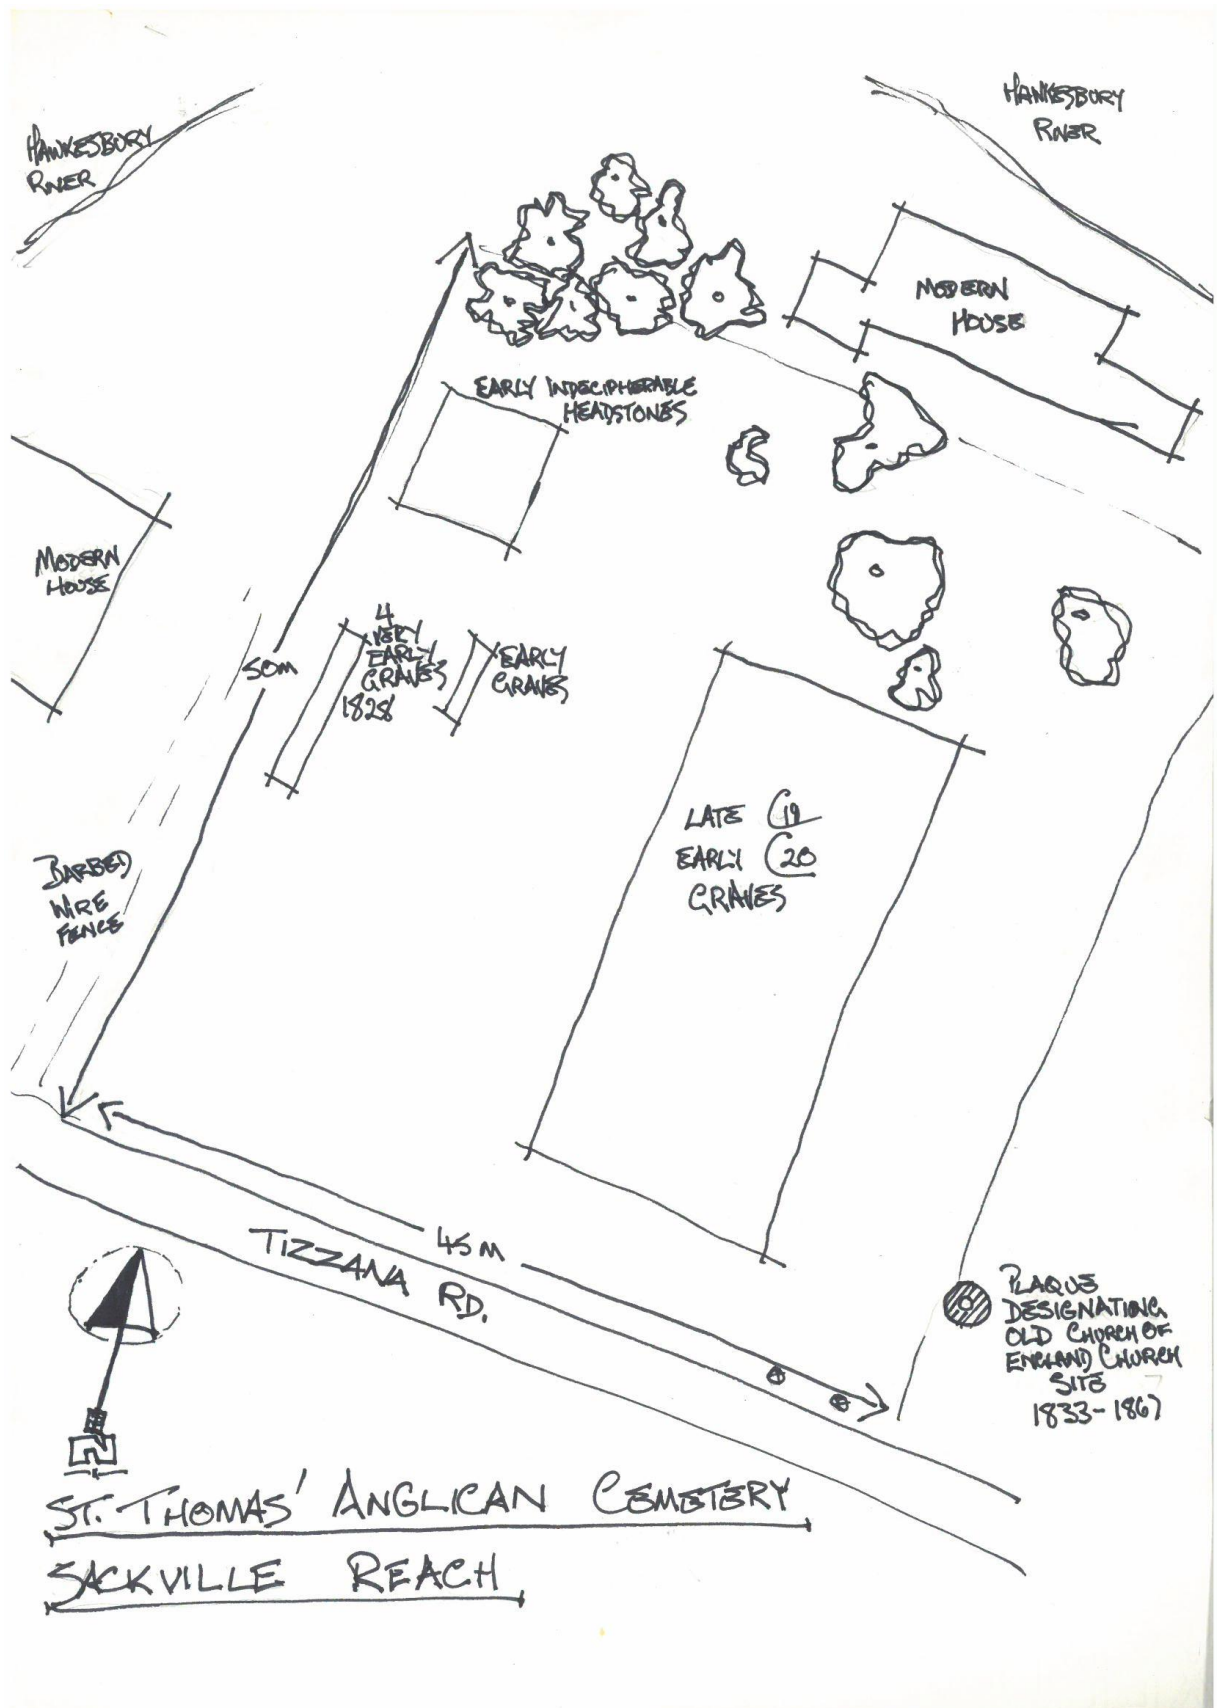 HAWKESBURY
RIVER
HAWKESBURY
RIVER
MODERN
HOUSE
EARLY INDECIPHERABLE
HEADSTONES
MODERN
HOUSE
50M
4
VERY
EARLY
GRAVES
1828
EARLY
GRAVES
LATE C19
EARLY C20
GRAVES
BARBED
WIRE
FENCE
45M
TIZZANA RD.
PLAQUE
DESIGNATING
OLD CHURCH OF
ENGLAND CHURCH
SITE
1833-1867
ST. THOMAS' ANGLICAN CEMETERY
SACKVILLE REACH